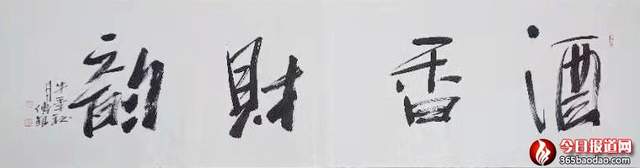 酒香財韵
牛年
月
今日报道网
365baodao.com